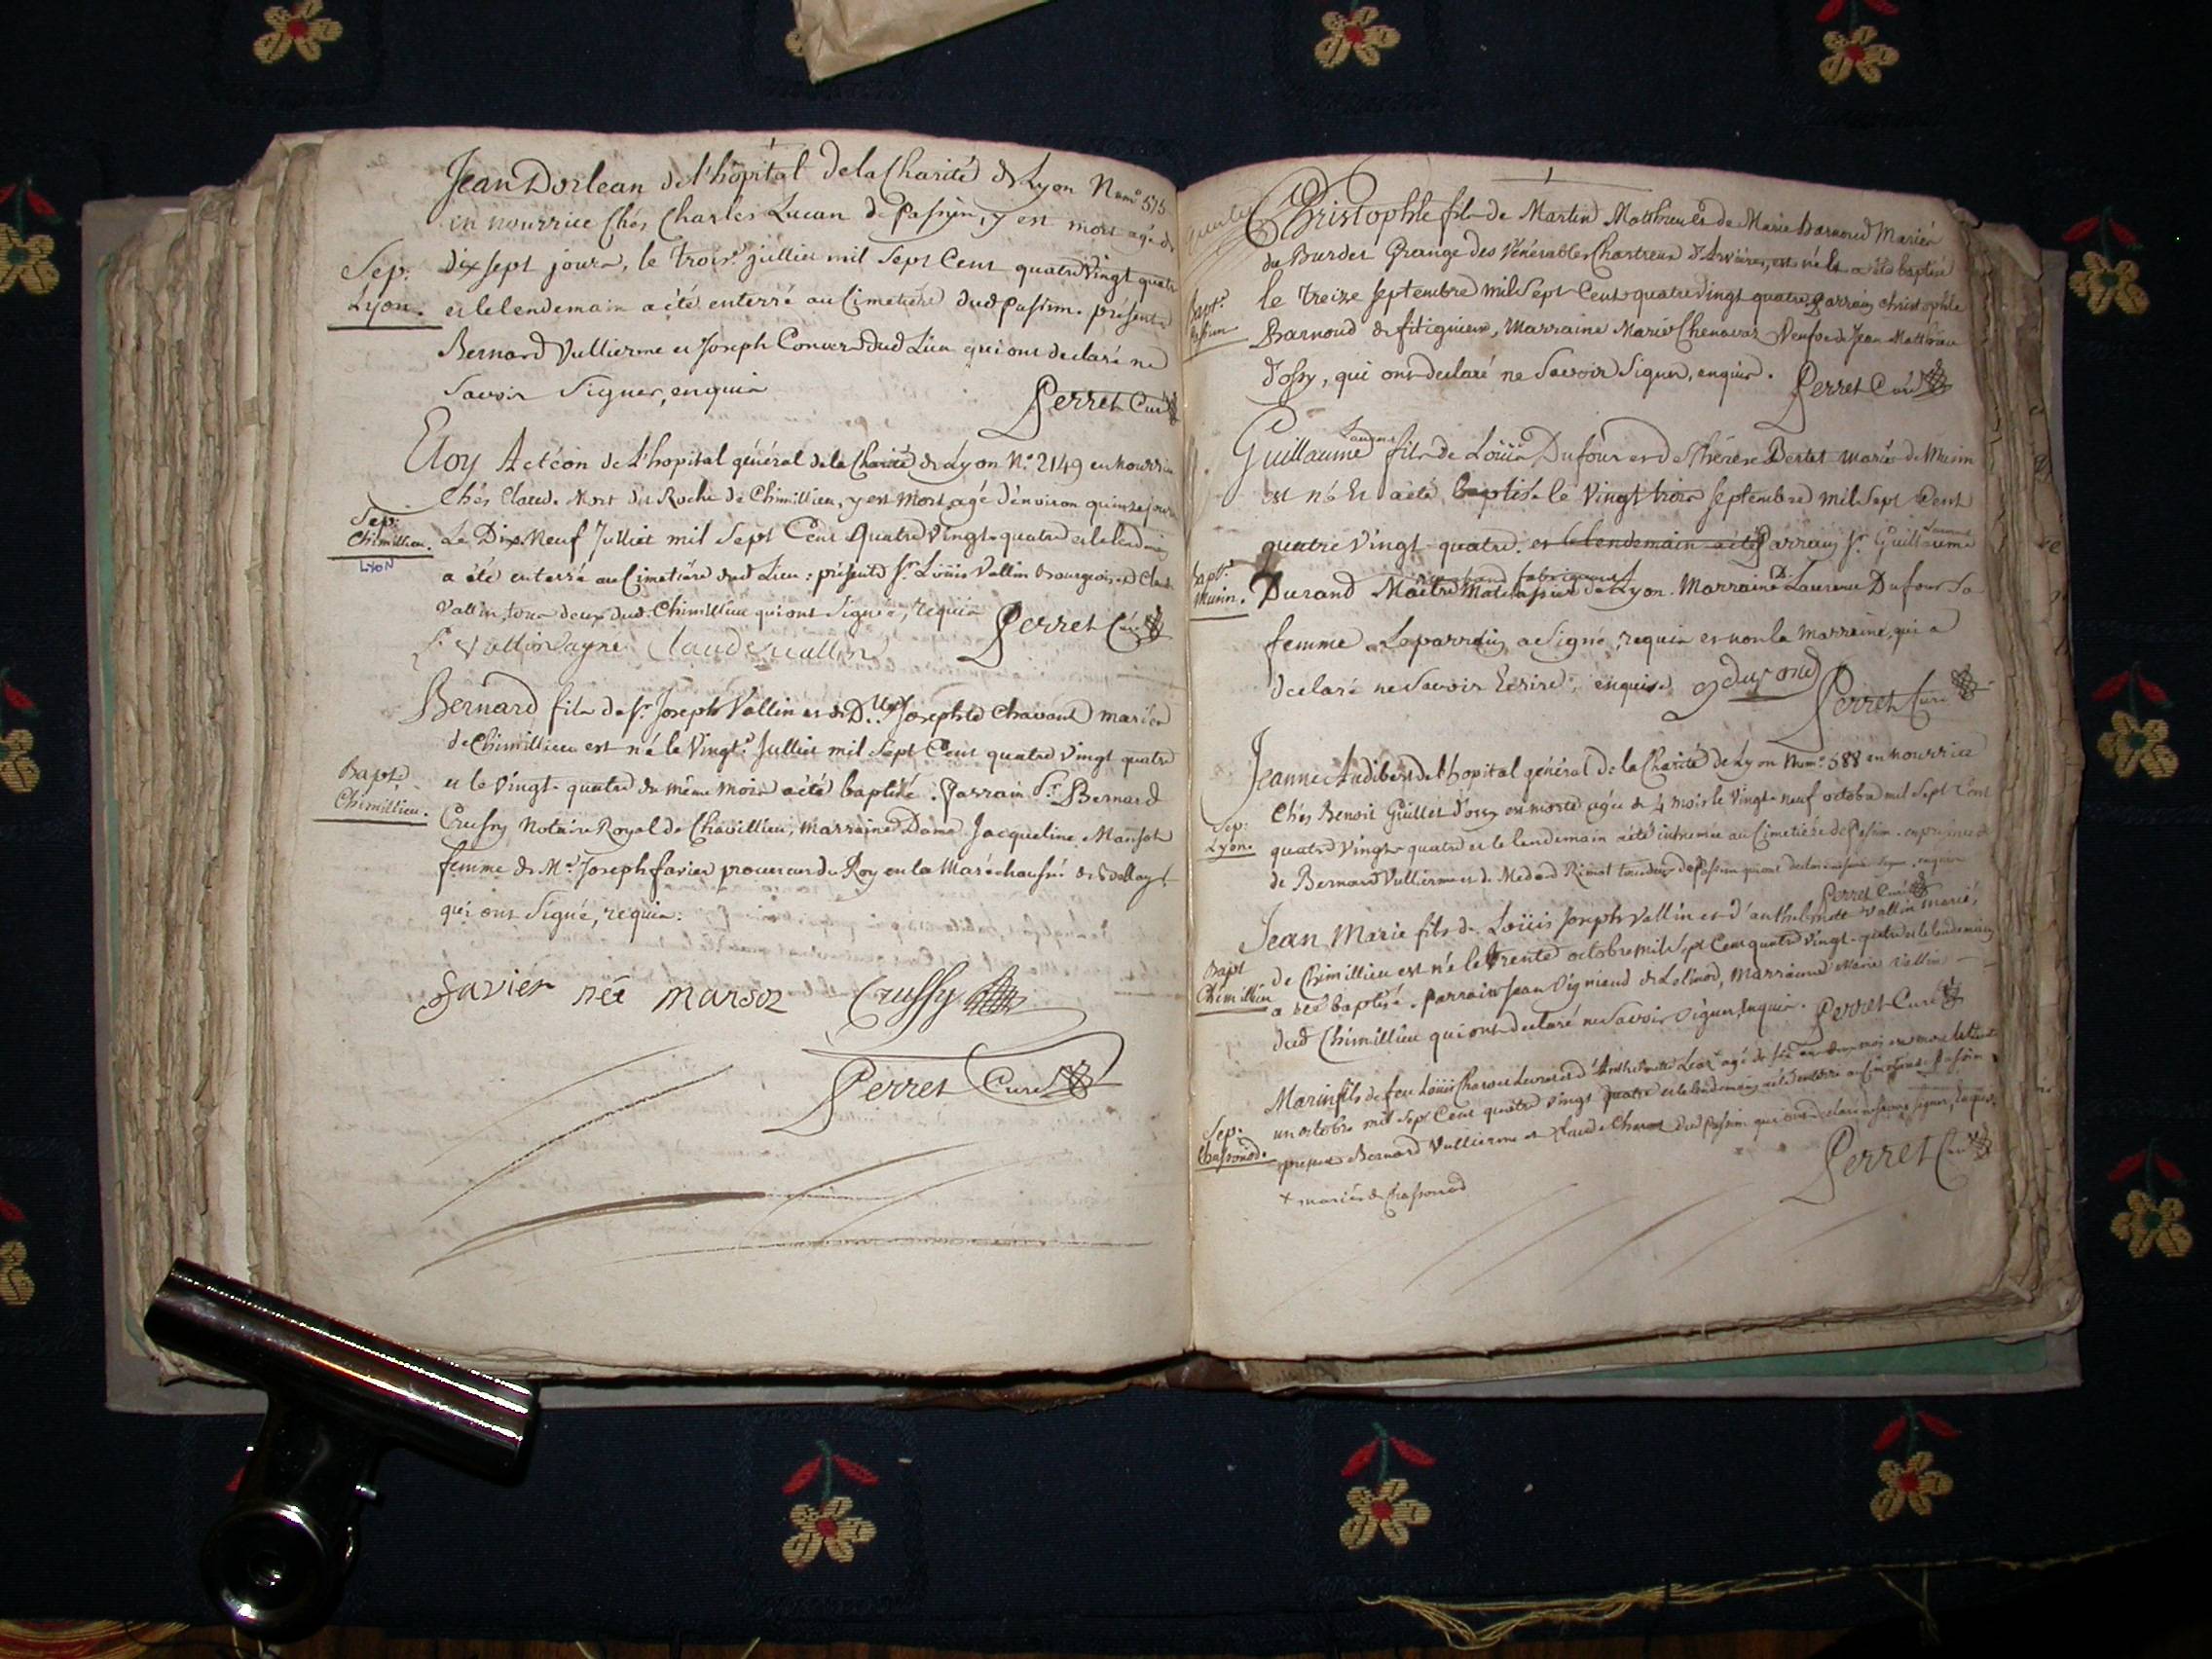 Jean Dorlean de l'hôpital de la Charité de Lyon Num° 575
en nourrice Chés Charles Lucan de passin, y est mort agé de
Sep: Lyon.
dix sept jours, le trois juillet mil sept Cent quatre vingt quatre
et le lendemain a été enterré au Cimetière dud passin. présents
Bernard Vullierme et Joseph Convers dud Lieu qui ont declaré ne
savoir signer, enquis
Perret Curé
Eloy Acteon de L'hopital général de la Charité de Lyon N.° 2149 en nourrice
Chés Claud. Mort dit Roche de Chimillieu, y est mort agé d'environ quinze jours
Sep: Chimillieu.
LYON
Le Dix Neuf Juillet mil sept Cent Quatre vingt quatre et le lendemain
a été enterré au Cimetière dud Lieu: présents Sr. Loüis Vallin Bourgeois et Claude
Vallin, tous deux dud. Chimillieu qui ont signé, requis
Perret Curé
Vallin ayné Claude vallin
Bernard fils de Sr. Joseph Vallin et de D.lle Josephte Chavant mariés
de Chimillieu est né le Vingt Juillet mil sept Cent quatre vingt quatre
Bapt. Chimillieu.
et le vingt-quatre du même mois a été baptisé. Parrain Sr. Bernard
Crussy Notaire Royal de Chavillieu, marraine Dame Jacqueline Marsot
femme de Me. Joseph favier procureur du Roy en la Maréchaussée de
qui ont signé, requis:
favier née marsoz Crussy
Perret Curé
Christophle fils de Martin Matthieu et de Marie Barnoud Mariés
du Burdet Grange des Vénérables Chartreux d'Arvières, est né et a été baptisé
Bapt. passin
le treize septembre mil Sept Cent quatre vingt quatre, parrain christophle
Barnoud de fitignieu, Marraine Marie Chenavaz Veufve de Jean Matthieu
d'ossy, qui ont declaré ne savoir signer, enquis.
Perret Curé
Guillaume Laurent fils de Loüis Dufour et de Thérèse Bertet mariés de Musin
est né et a été baptisé le vingt trois septembre mil sept Cent
quatre vingt quatre. et le lendemain a été Parrain Sr. Guillaume
Bapt. Musin.
Durand Maître Marchand fabriquant de Lyon. Marraine D. Laurence Dufour sa
femme. Le parrain a signé, requis et non la marraine, qui a
declaré ne savoir Ecrire, enquise
g durand
Perret Curé
Jeanne Audibert de l'hopital général de la Charité de Lyon Num° 588 en nourrice
Chés Benoit Guillet d'ossy est morte agée de 4 mois le vingt-neuf octobre mil sept Cent
Sep: Lyon.
quatre vingt-quatre et le lendemain a été inhumée au Cimetière de Passin. en présence
de Bernard Vullierme et de Medard Rimot tous deux de Passin qui ont declaré ne savoir signer, enquis
Perret Curé
Jean Marie fils de Loüis Joseph Vallin et d'anthelmette Vallin mariés
Bapt Chimillieu
de Chimillieu est né le trente octobre mil sept Cent quatre vingt-quatre et le lendemain
a été baptisé. parrain Jean Vigniaud de Lolinod, Marraine Marie Vallin
dud Chimillieu qui ont declaré ne savoir signer, Enquis.
Perret Curé
Marin fils de feu Loüis
un octobre mil sept Cent quatre vingt quatre et le lendemain a été enterré au Cimetière de Passin
Sep. Chassonod.
présents Bernard Vullierme et Claude dud Passin qui ont declaré ne savoir signer, Enquis.
Perret Curé
+ mariés de Chassonod